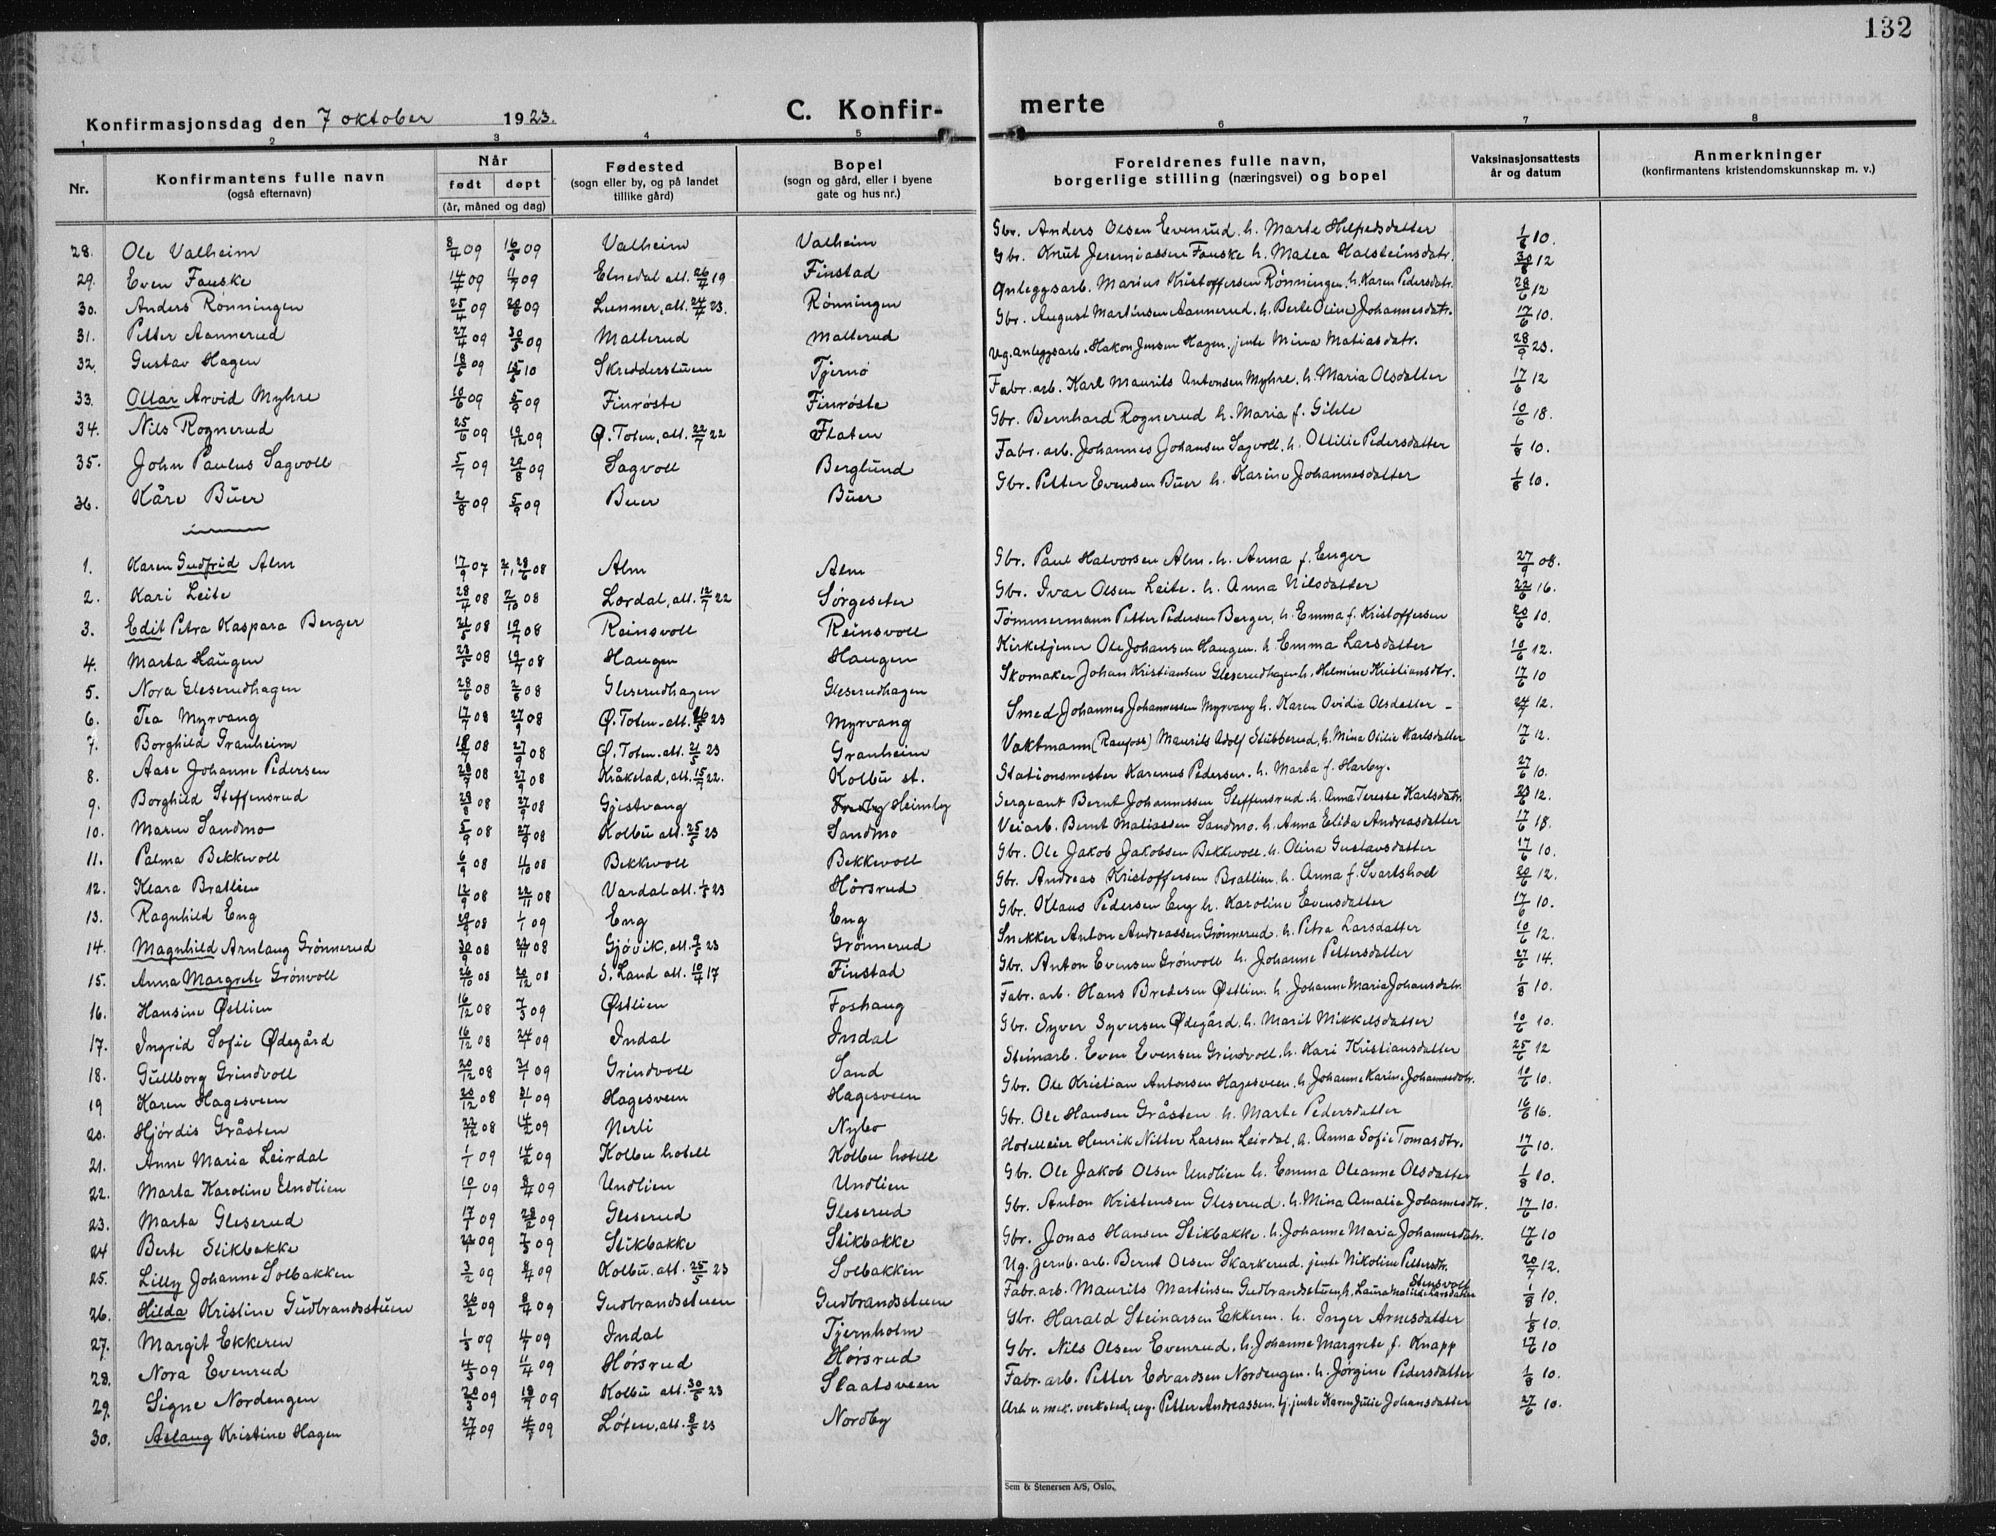 132
Konfirmasjonsdag den 7 oktober 1923.
C. Konfir-
merte
1 2 3 4 5 6 7 8
Nr. Konfirmantens fulle navn (også efternavn) Når født døpt (år, måned og dag) Fødested (sogn eller by, og på landet tillike gård) Bopel (sogn og gård, eller i byene gate og hus nr.) Foreldrenes fulle navn, borgerlige stilling (næringsvei) og bopel Vaksinasjonsattests år og datum Anmerkninger (konfirmantens kristendomskunnskap m. v.)
28. Ole Valheim 8/4 09 16/5 09 Valheim Valheim Gbr. Anders Olsen Evenrud. h. Marte Helfredsdatter 1/8 10.
29. Even Fauske 14/4 09 11/7 09 Elnedal att. 26/4 19 Finstad Gbr. Knut Jeremiassen Fauske h. Malea Halsteinsdatr. 30/8 12
30. Anders Rønningen 25/4 09 20/6 09 Lunner, att. 24/4 23. Rønningen Anleggsarb. Marius Kristoffersen Rønningen, h. Karen Pedersdatr. 28/6 12
31. Petter Aannerud 27/4 09 30/5 09 Malterud Malterud Gbr. August Martinsen Aannerud. h. Berte Oline Johannesdatr. 17/6 10.
32. Gustav Hagen 18/6 09 15/5 10 Skredderstuen Tjernø Ug. anleggsarb. Hakon Jensen Hagen, jente Mina Matiasdatr. 28/9 23.
33. Ottar Arvid Myhre 10/6 09 5/9 09 Finrøste Finrøste Fabr. arb. Karl Maurits Antonsen Myhre. h. Maria Olsdatter 17/6 12
34. Nils Rognerud 25/6 09 19/12 09 Ø. Toten, att. 22/7 22 Flaten Gbr. Bernhard Rognerud h. Maria f. Gihle 10/6 18.
35. John Paulus Sagvoll 5/7 09 29/8 09 Sagvoll Berglund Fabr. arb. Johannes Johansen Sagvoll. h. Ottilie Pedersdatter 1/8 10.
36. Kåre Buer 2/8 09 5/9 09 Buer Buer Gbr. Petter Evensen Buer h. Karine Johannesdatter 1/8 10.
1. Karen Gudfrid Alm 17/9 07 28/6 08 Alm Alm Gbr. Paul Halvorsen Alm. h. Anna f. Enger 27/9 08.
2. Kari Leite 28/4 08 2/10 08 Lærdal, att. 12/7 22 Sørgeseter Gbr. Ivar Olsen Leite. h. Anna Nilsdatter 22/6 16.
3. Edit Petra Kaspara Berger 21/5 08 19/7 08 Reinsvoll Reinsvoll Tømmermann Petter Pedersen Berger, h. Emma f. Kristoffersen 20/6 10.
4. Marta Haugen 23/5 08 19/7 08 Haugen Haugen Kirketjener Ole Johansen Haugen. h. Emma Larsdatter 10/6 12.
5. Nora Gleserudhagen 28/6 08 2/8 08 Gleserudhagen Gleserudhagen Skomaker Johan Kristiansen Gleserudhagen h. Helmine Kristiansdtr. 17/6 10
6. Tea Myrvang 17/7 08 27/9 08 Ø. Toten. att. 26/5 23 Myrvang Smed Johannes Johannessen Myrvang h. Karen Ovidia Olsdatter 24/7 12.
7. Borghild Granheim 18/7 08 27/9 08 Ø. Toten. att. 21/5 23 Granheim Vaktmann (Raufoss) Maurits Adolf Stubberud, h. Mina Otilie Karlsdatter 17/6 12.
8. Aase Johanne Pedersen 28/7 08 27/9 08 Kråkstad, att. 15/9 22. Kolbu st. Stationsmester Karenus Pedersen. h. Marta f. Harby. 27/6 10.
9. Borghild Steffensrud 29/8 08 27/9 08 Gjestvang Heimly Sergeant Bernt Johannessen Steffensrud. h. Anna Terese Karlsdatr. 23/6 12.
10. Maren Sandmo 5/9 08 27/9 08 Kolbu att. 25/5 23 Sandmo Veiarb. Bernt Matiassen Sandmo. h. Anna Elida Andreasdatter 17/6 18.
11. Palma Bekkevoll 6/9 08 11/10 08 Bekkevoll Bekkevoll Gbr. Ole Jakob Jakobsen Bekkevoll. h. Olina Gustavsdatter 17/6 10.
12. Klara Bratlien 12/9 08 22/11 08 Vardal att. 1/5 23 Hørsrud Gbr. Andreas Kristoffersen Bratlien. h. Anna f. Svartshod 20/6 12.
13. Ragnhild Eng 29/9 08 1/1 09 Eng Eng Gbr. Klaus Pedersen Eng h. Karoline Evensdatter 17/6 10.
14. Magnhild Arnlaug Grønnerud 30/9 08 22/11 08 Gjøvik, att. 9/5 23 Grønnerud Snekker Anton Andreassen Grønnerud. h. Petra Larsdatter 10/6 12.
15. Anna Margrete Grønvoll 26/10 08 20/12 08 S. Land att. 10/4 17 Finstad Gbr. Anton Evensen Grønvoll h. Johanne Pettersdatter 27/6 14.
16. Hansine Østlien 16/12 08 7/3 09 Østlien Foshaug Fabr. arb. Hans Bredesen Østlien. h. Johanne Maria Johansdatr. 1/8 10.
17. Ingrid Sofie Ødegård 16/12 08 24/1 09 Indal Indal Gbr. Syver Syversen Ødegård. h. Marit Mikkelsdatter 10/6 10.
18. Gullborg Grindvoll 20/12 08 31/1 09 Grindvoll Sand Steinarb. Even Evensen Grindvoll. h. Kari Kristiansdatter 25/6 12
19 Karen Hagesveen 20/12 08 31/1 09 Hagesveen Hagesveen Gbr. Ole Kristian Antonsen Hagesveen. h. Johanne Karine Johannesdtr. 10/6 10.
20. Hjørdis Gråsten 22/12 08 14/2 09 Nerli Nybo Gbr. Ole Hansen Gråsten. h. Marte Pedersdatter 16/6 16.
21. Anne Maria Leirdal 1/1 09 14/2 09 Kolbu hotell Kolbu hotell Hotelleier Henrik Nitter Larsen Leirdal, h. Anna Sofie Tomasdtr. 17/6 10.
22. Marta Karoline Undlien 10/1 09 8/4 09 Undlien Undlien Gbr. Ole Jakob Olsen Undlien h. Emma Oleanne Olsdatter 1/8 10.
23. Marta Gleserud 17/1 09 28/2 09 Gleserud Gleserud Gbr. Anton Kristensen Gleserud. h. Mina Amalia Johannesdtr. 17/6 10.
24 Berte Stikbakke 22/1 09 7/3 09 Stikbakke Stikbakke Gbr. Jonas Hansen Stikbakke. h. Johanne Maria Johannesdatr. 17/6 10
25. Lilly Johanne Solbakken 3/2 09 8/4 09 Kolbu. att. 25/5 23 Solbakken Ug. jernb. arb. Bernt Olsen Skarkerud. jente Nikoline Pettersdtr. Stensvoll 20/7 12.
26. Hilda Kristine Gudbrandsstuen 26/2 09 8/4 09 Gudbrandsstuen Gudbrandsstuen Fabr. arb. Maurits Martinsen Gudbrandsstuen, h. Laura Matilde Larsdatter 1/8 10.
27. Margit Ekkeren 1/3 09 4/7 09 Indal Tjernholm Gbr. Harald Steinarsen Ekkeren. h. Inger Arnesdatter 1/8 10.
28. Nora Evenrud 4/3 09 11/4 09 Hørsrud Hørsrud Gbr. Nils Olsen Evenrud. h. Johanne Margrete f. Knapp 17/6 10
29. Signe Nordengen 20/3 09 18/7 09 Kolbu att. 30/5 23 Slaatsveen Fabr. arb. Petter Edvardsen Nordengen. h. Jørgine Pedersdatter 1/8 10.
30. Aslaug Kristine Hagen 27/4 09 4/7 09 Løten, att. 8/5 23 Nordby Arb. v. mek. verksted, ug. Petter Andreassen. tj. jente Karen Julie Johansdatter 27/6 10.
Sem & Stenersen A/S, Oslo.